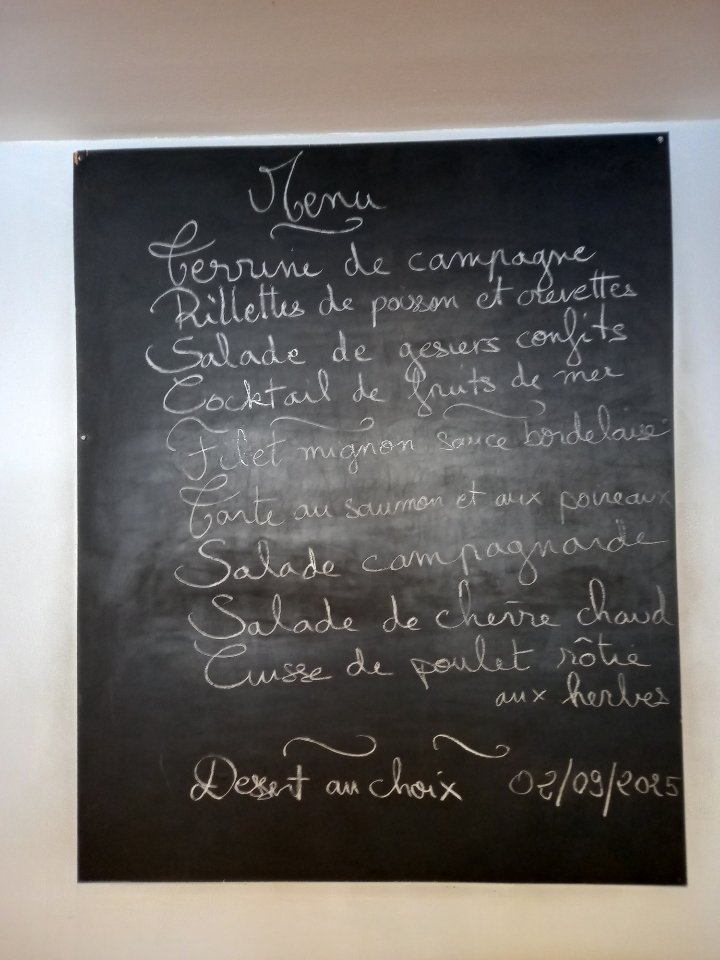 Menu
Terrine de campagne
Rillettes de poisson et crevettes
Salade de gesiers confits
Cocktail de fruits de mer
Filet mignon sauce bordelaise
Tarte au saumon et aux poireaux
Salade campagnarde
Salade de chèvre chaud
Cuisse de poulet rôtie
aux herbes
Dessert au choix 02/09/2025